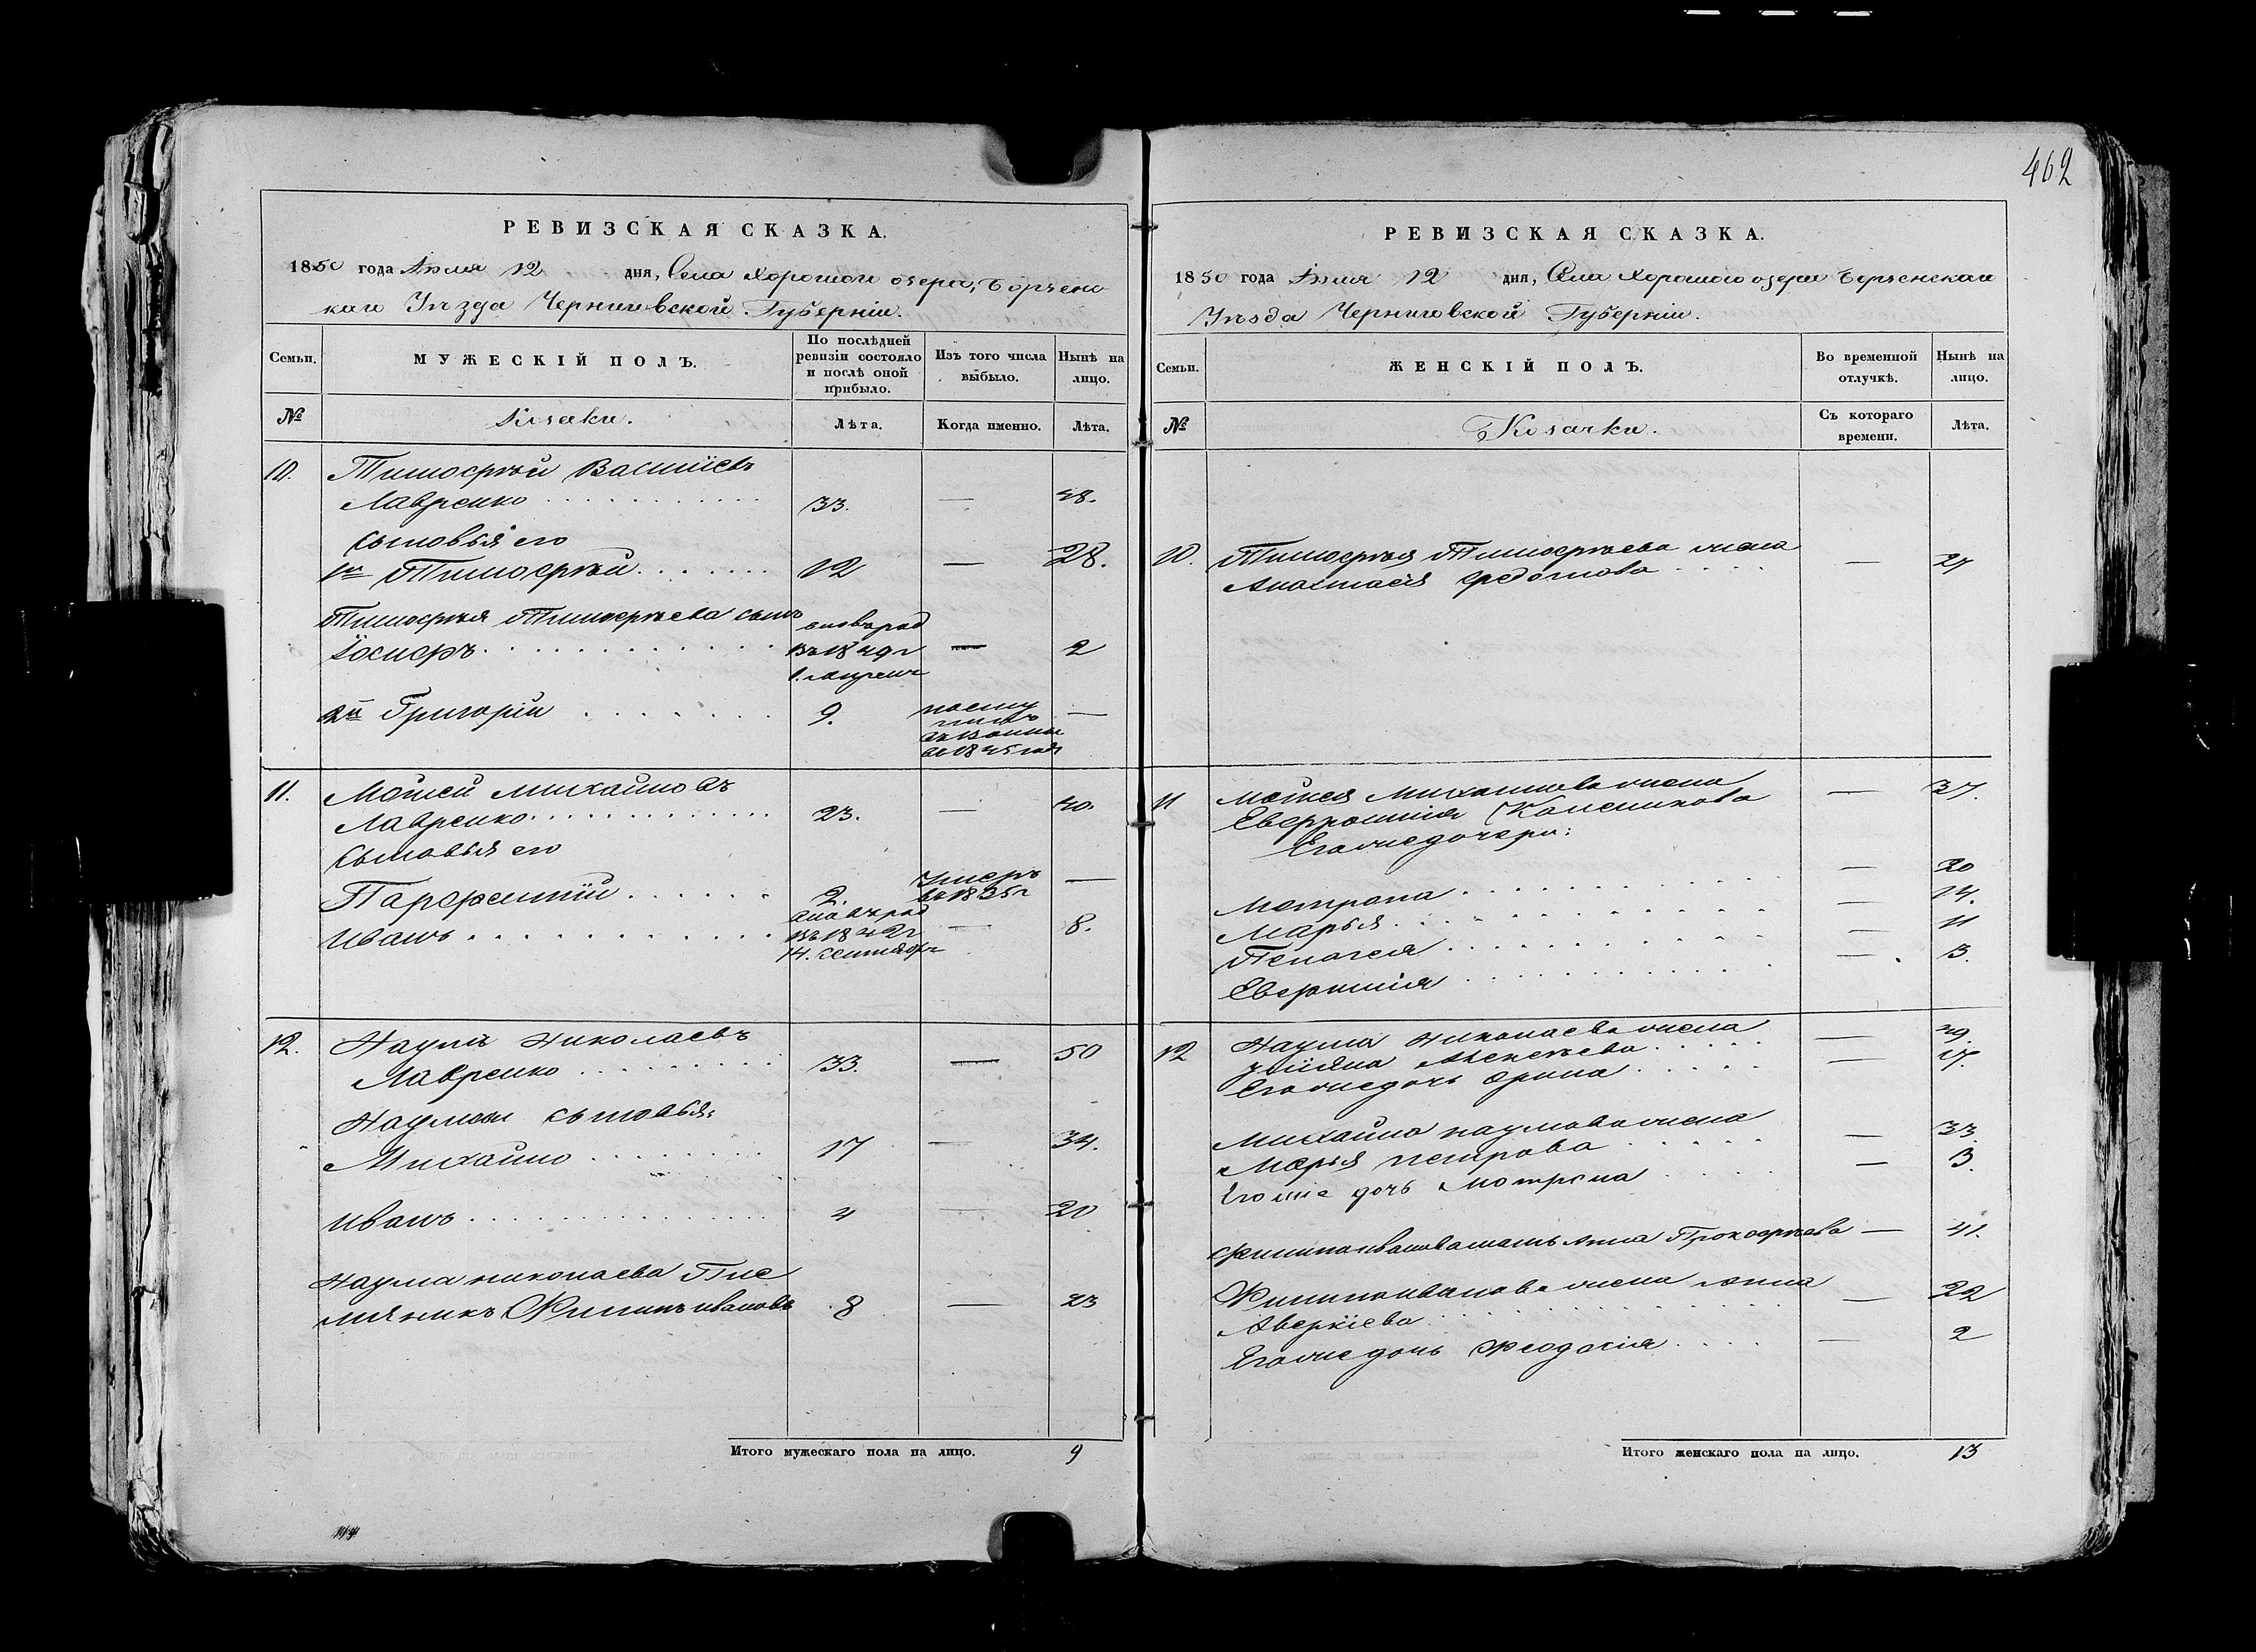 462
РЕВИЗСКАЯ СКАЗКА.
1850 года Июня 12 дня, Села Хорошого озера, Борзенс
каго Уѣзда Черниговской Губерніи.
Семьи.
МУЖЕСКІЙ ПОЛЪ.
По послѣдней
ревизіи состояло
и послѣ оной
прибыло.
Изъ того числа
выбыло.
Нынѣ на
лицо.
№
Козаки.
Лѣта.
Когда именно.
Лѣта.
10. Тимофѣй Василіевъ
Лавренко 33. — 48.
сыновья его
1й Тимофѣй 12 — 28.
Тимофѣя Тимофѣева сынъ
Іосифъ
вновь род
въ 1849 г
— 2
2й Григорій 9.
посту
пилъ
въ 1845 году
—
11. Мойсей Михайловъ
Лавренко 23. — 40.
Сыновья его
Парфентій 2.
Умеръ
въ 1835 г
—
Иванъ
вновь род
въ 1842 г
14. сентября
— 8.
12. Наумъ Николаевъ
Лавренко 33. — 50
Наумовы сыновья:
Михайло 17 — 34.
Иванъ 4 — 20
Наума николаева Пле
мяникъ Филипъ ивановъ 8 — 23
Итого мужескаго пола на лицо. 9
РЕВИЗСКАЯ СКАЗКА.
1850 года Июня 12 дня, Села Хорошого озера Борзенскаго
Уѣзда Черниговской Губерніи.
Семьи.
ЖЕНСКІЙ ПОЛЪ.
Во временной
отлучкѣ.
Нынѣ на
лицо.
№
Козачки.
Съ котораго
времени.
Лѣта.
10. Тимофѣя Тимофѣева жена
Анастасія Федотова —
11 Мойсея Михайлова жена — 37.
Евфросинія
Его же дочери:
Мотрона — 20
Марья — 14.
Пелагея — 11
Евфимия — 3.
12 Наума Николаева жена
Улияна —
Его же дочь Орина — 17.
Михайла наумова жена
Марья петрова — 33.
Его же дочь Мотрона — 3.
Филипа иванова мать Анна Прокофіева — 41.
Филипа иванова жена Анна
Аверкіева — 22
Его же дочь Феодосія — 2
Итого женскаго пола на лицо. 13